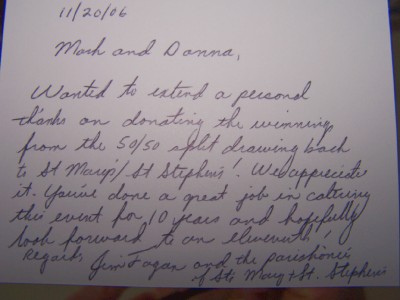 11/20/06
Mark and Donna,
Wanted to extend a personal
thanks on donating the winnings
from the 50/50 split drawing back
to St Mary's/St Stephens'! We appreciate
it. You've done a great job in catering
this event for 10 years and hopefully
look forward to an eleventh!
Regards, Jim Fagan and the parishoners
of St. Mary + St. Stephen's